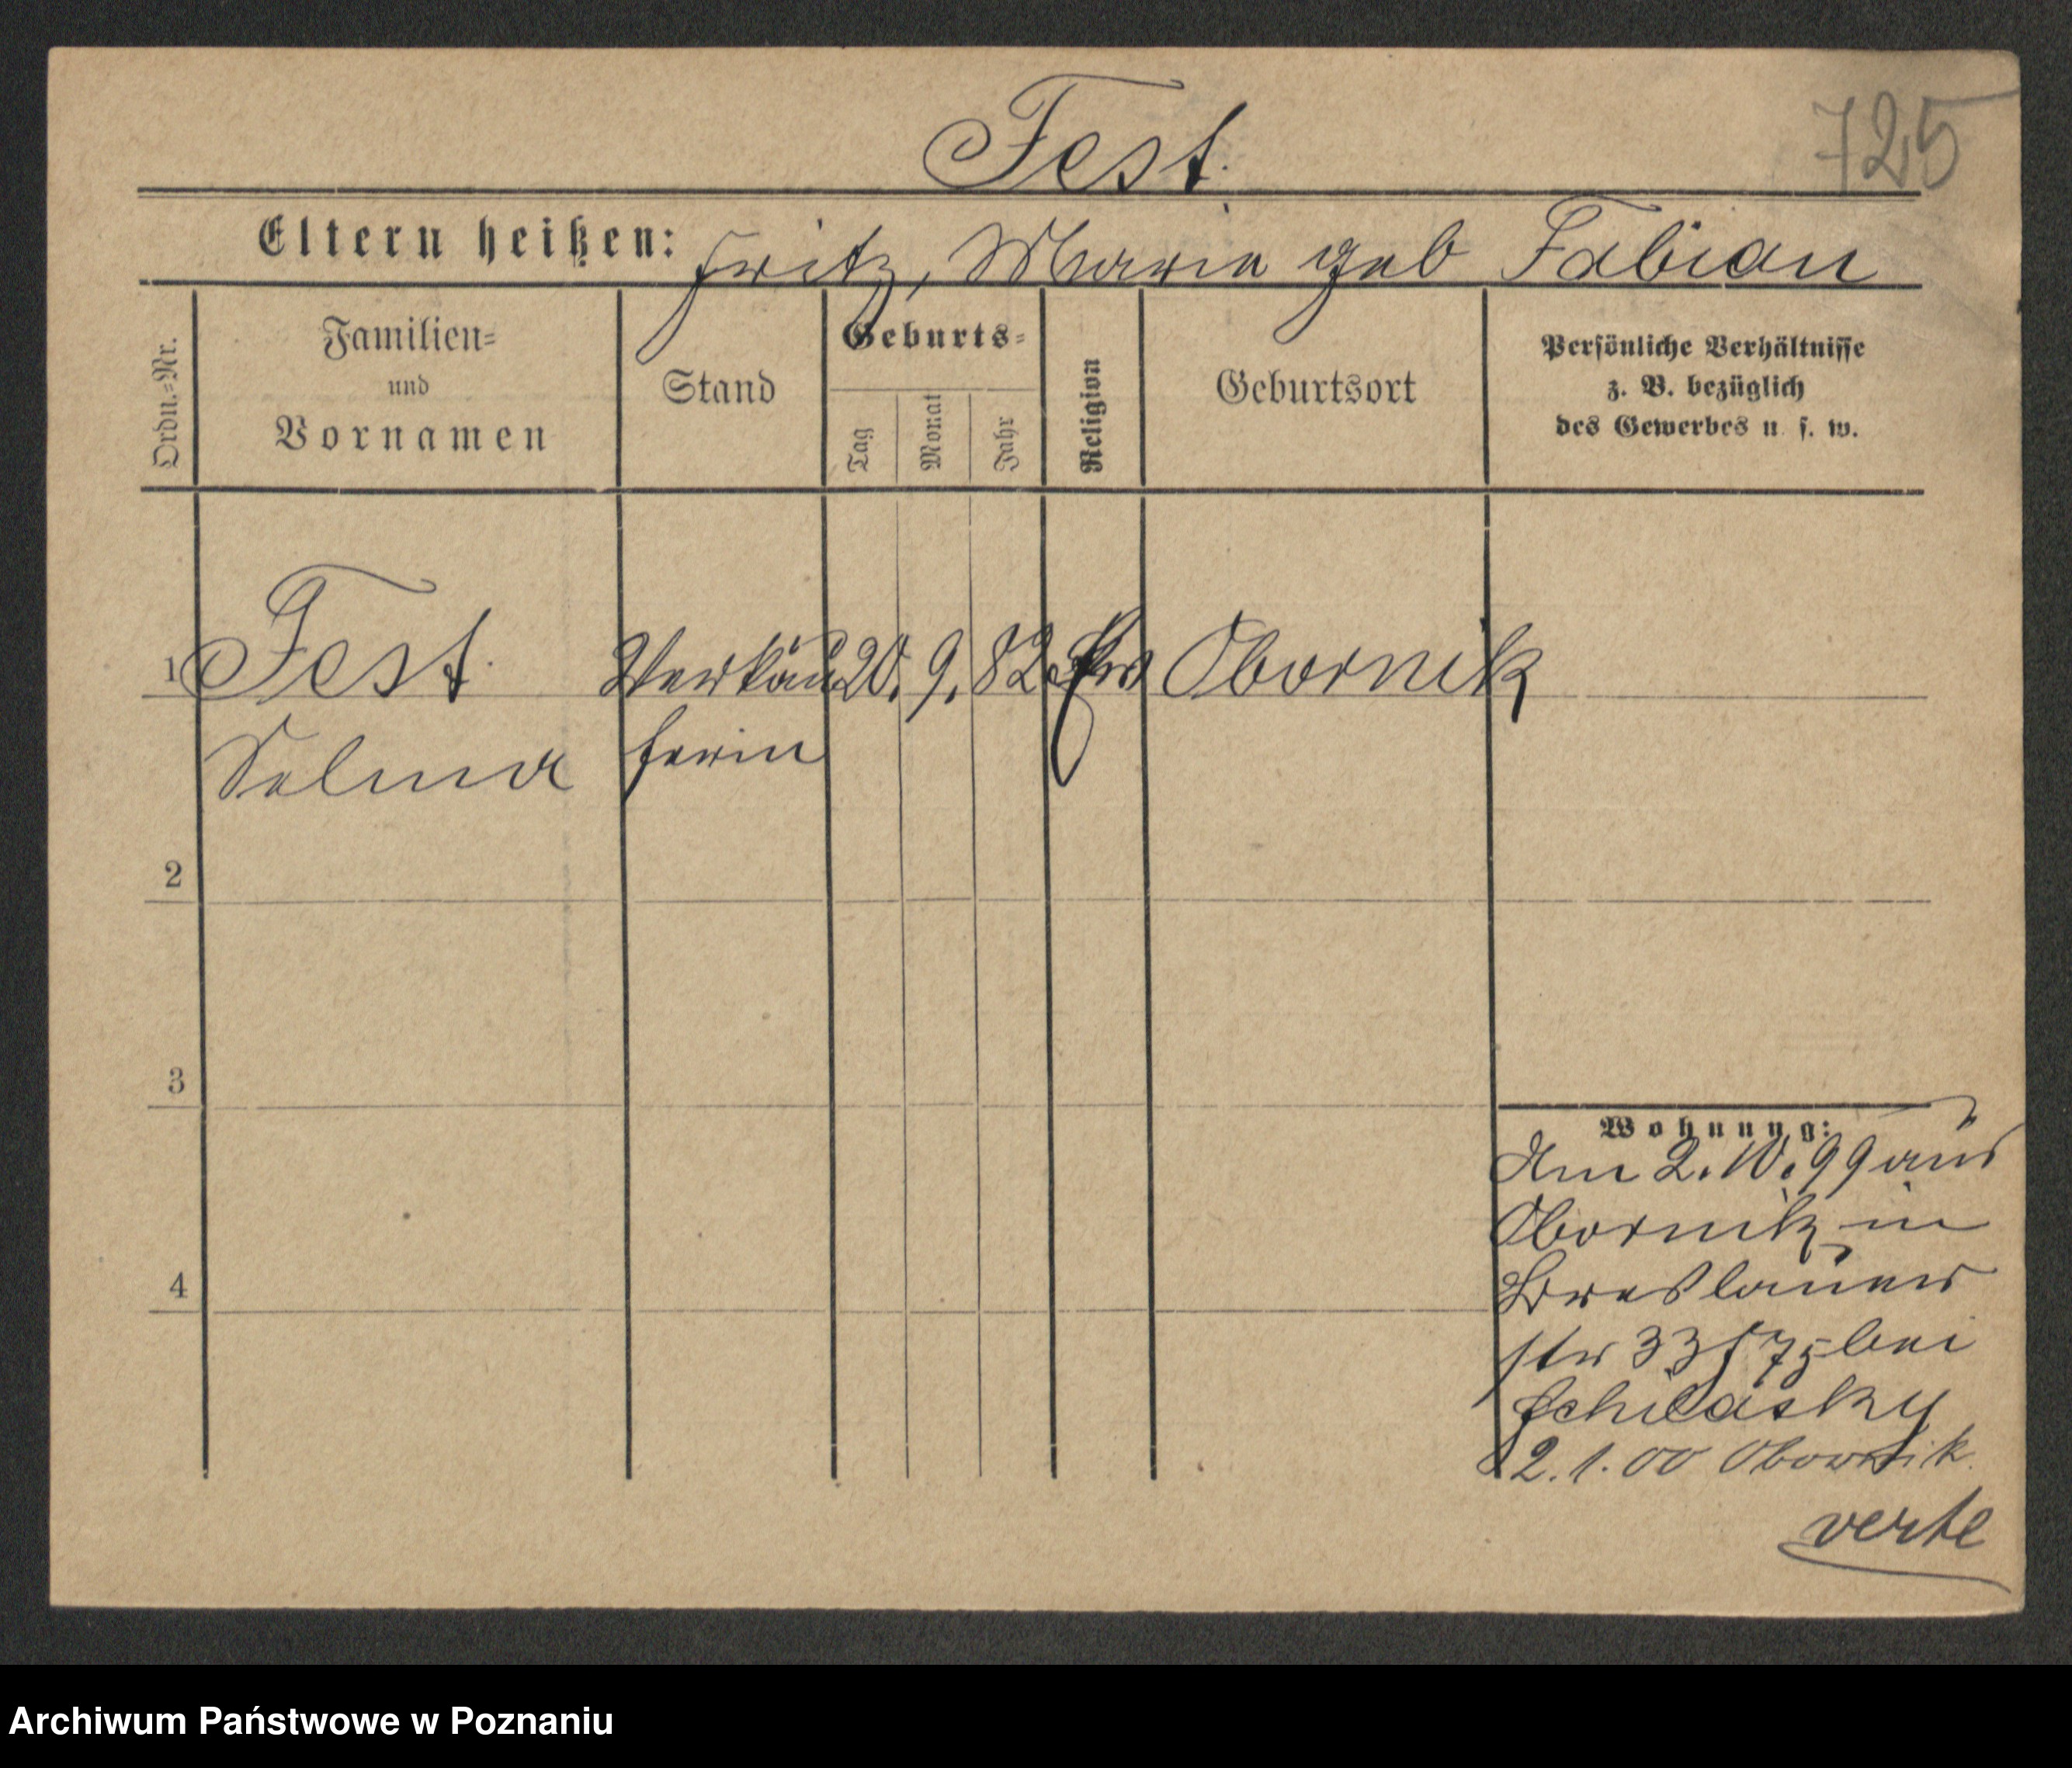 Fest.
725
Eltern heißen: Fritz, Marie geb Fabian
Ordn.=Nr.
Familien=
und
Vornamen
Stand
Geburts=
Tag
Monat
Jahr
Religion
Geburtsort
Persönliche Verhältnisse
z. B. bezüglich
des Gewerbes u. s. w.
1 Fest. Verkäu 20. 9. 82 Obornik
Selma ferin
2
3
4
Wohnung:
Am 2. 10. 99 aus
Obornik in
Breslauer
str 33 bei
2. 1. 00 Obornik.
verte
Archiwum Państwowe w Poznaniu